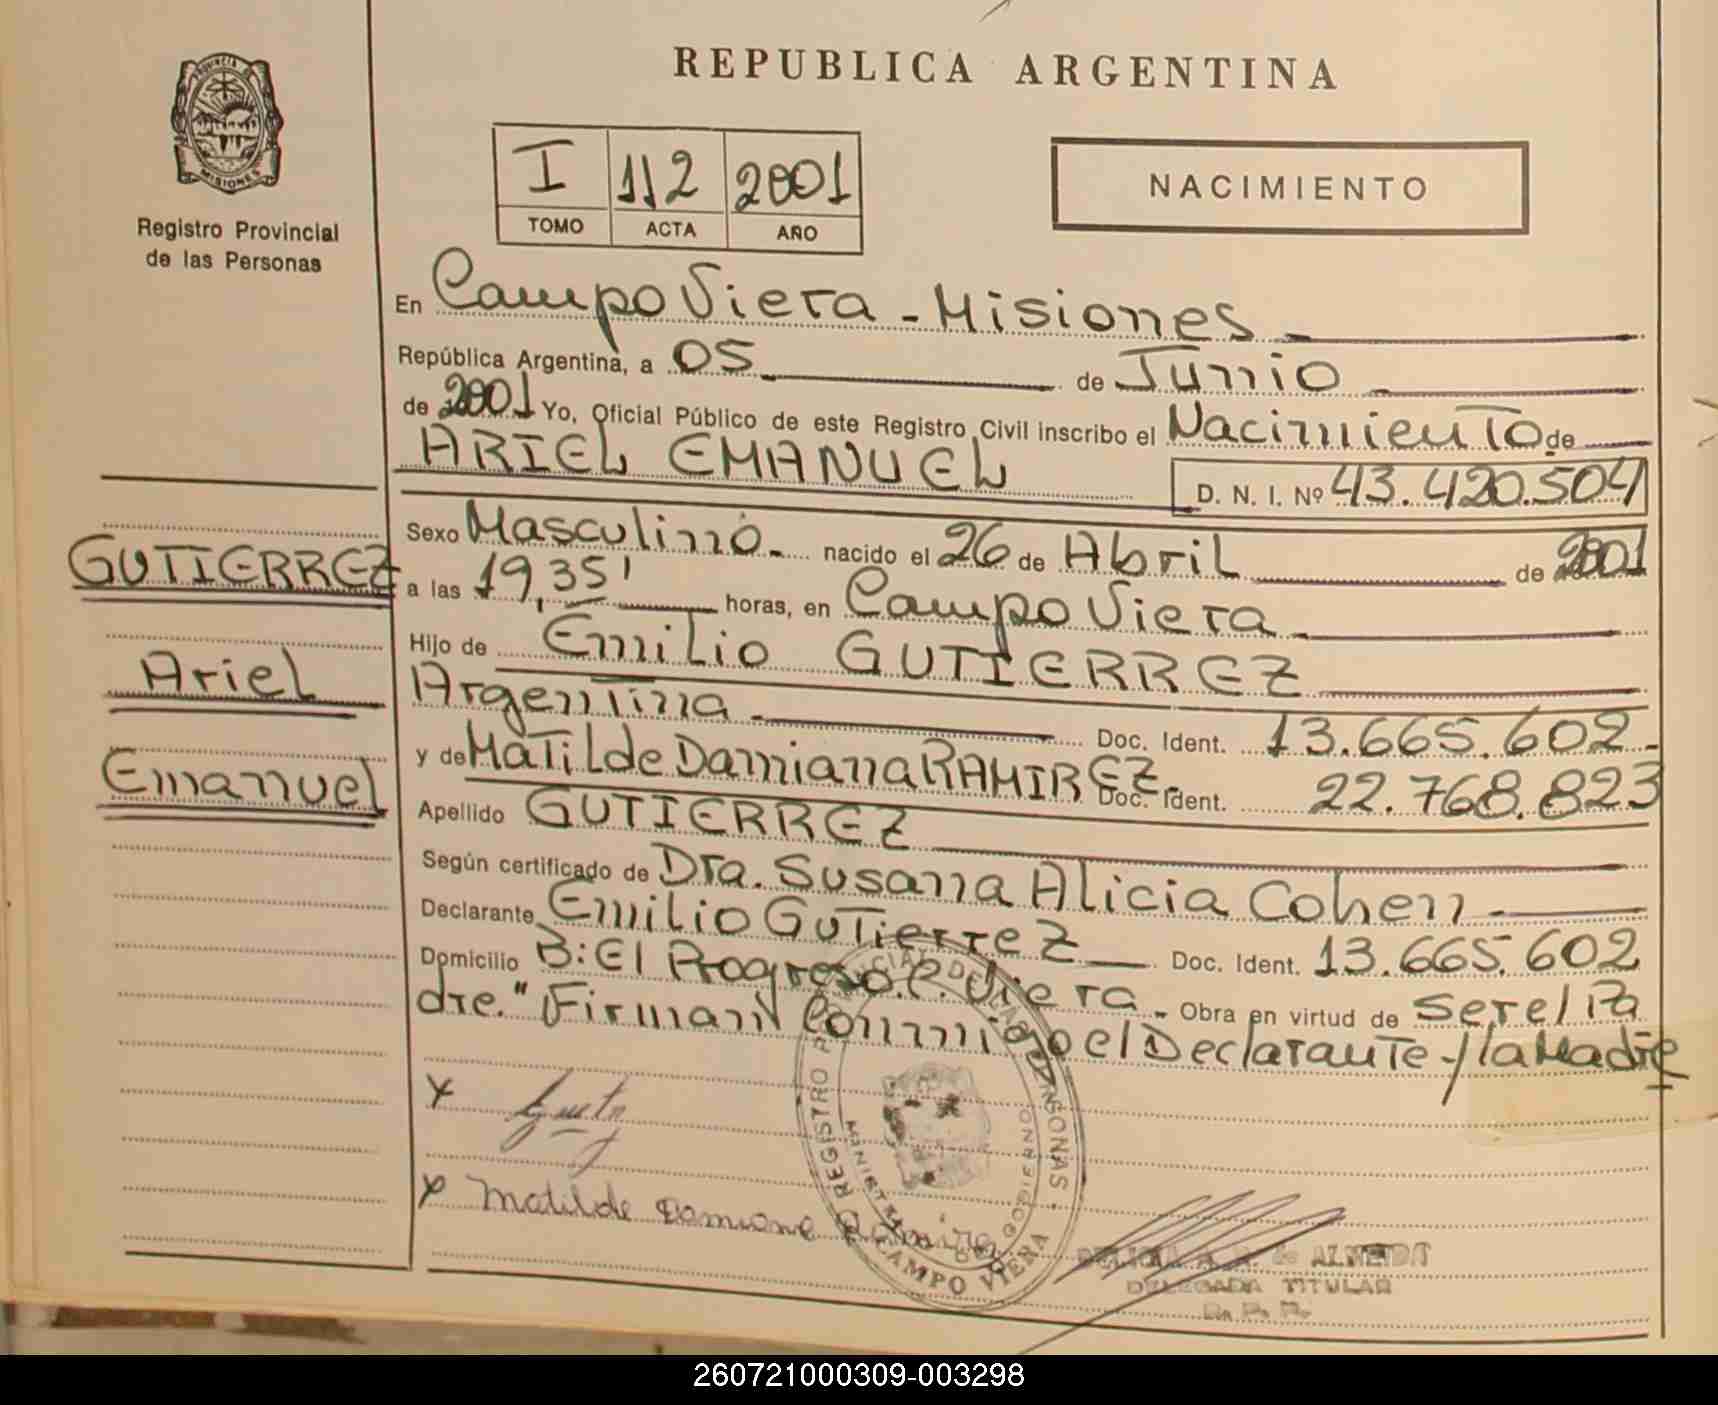 REPUBLICA ARGENTINA
PROVINCIA DE
MISIONES
Registro Provincial
de las Personas
I 112 2001
TOMO ACTA AÑO
NACIMIENTO
En Campo Viera - Misiones
República Argentina, a 05 de Junio
de 2001 Yo, Oficial Público de este Registro Civil inscribo el Nacimiento de
ARIEL EMANUEL
D. N. I. Nº 43.420.504
GUTIERREZ
Ariel
Emanuel
Sexo Masculino. nacido el 26 de Abril de 2001
a las 19,35' horas, en Campo Viera
Hijo de Emilio GUTIERREZ
Argentina Doc. Ident. 13.665.602
y de Matilde Damiana RAMIREZ. Doc. Ident. 22.768.823
Apellido GUTIERREZ
Según certificado de Dra. Susana Alicia Cohen
Declarante Emilio Gutierrez Doc. Ident. 13.665.602
Domicilio B: El Progreso. C. Viera Obra en virtud de ser el Pa
dre." Firman Conmigo el Declarante y la Madre
x
x Matilde Damiana Ramirez
REGISTRO PROVINCIAL DE LAS PERSONAS
MINISTERIO DE GOBIERNO
CAMPO VIERA
DELICIA A. R. de ALMEIDA
DELEGADA TITULAR
R. P. P.
260721000309-003298